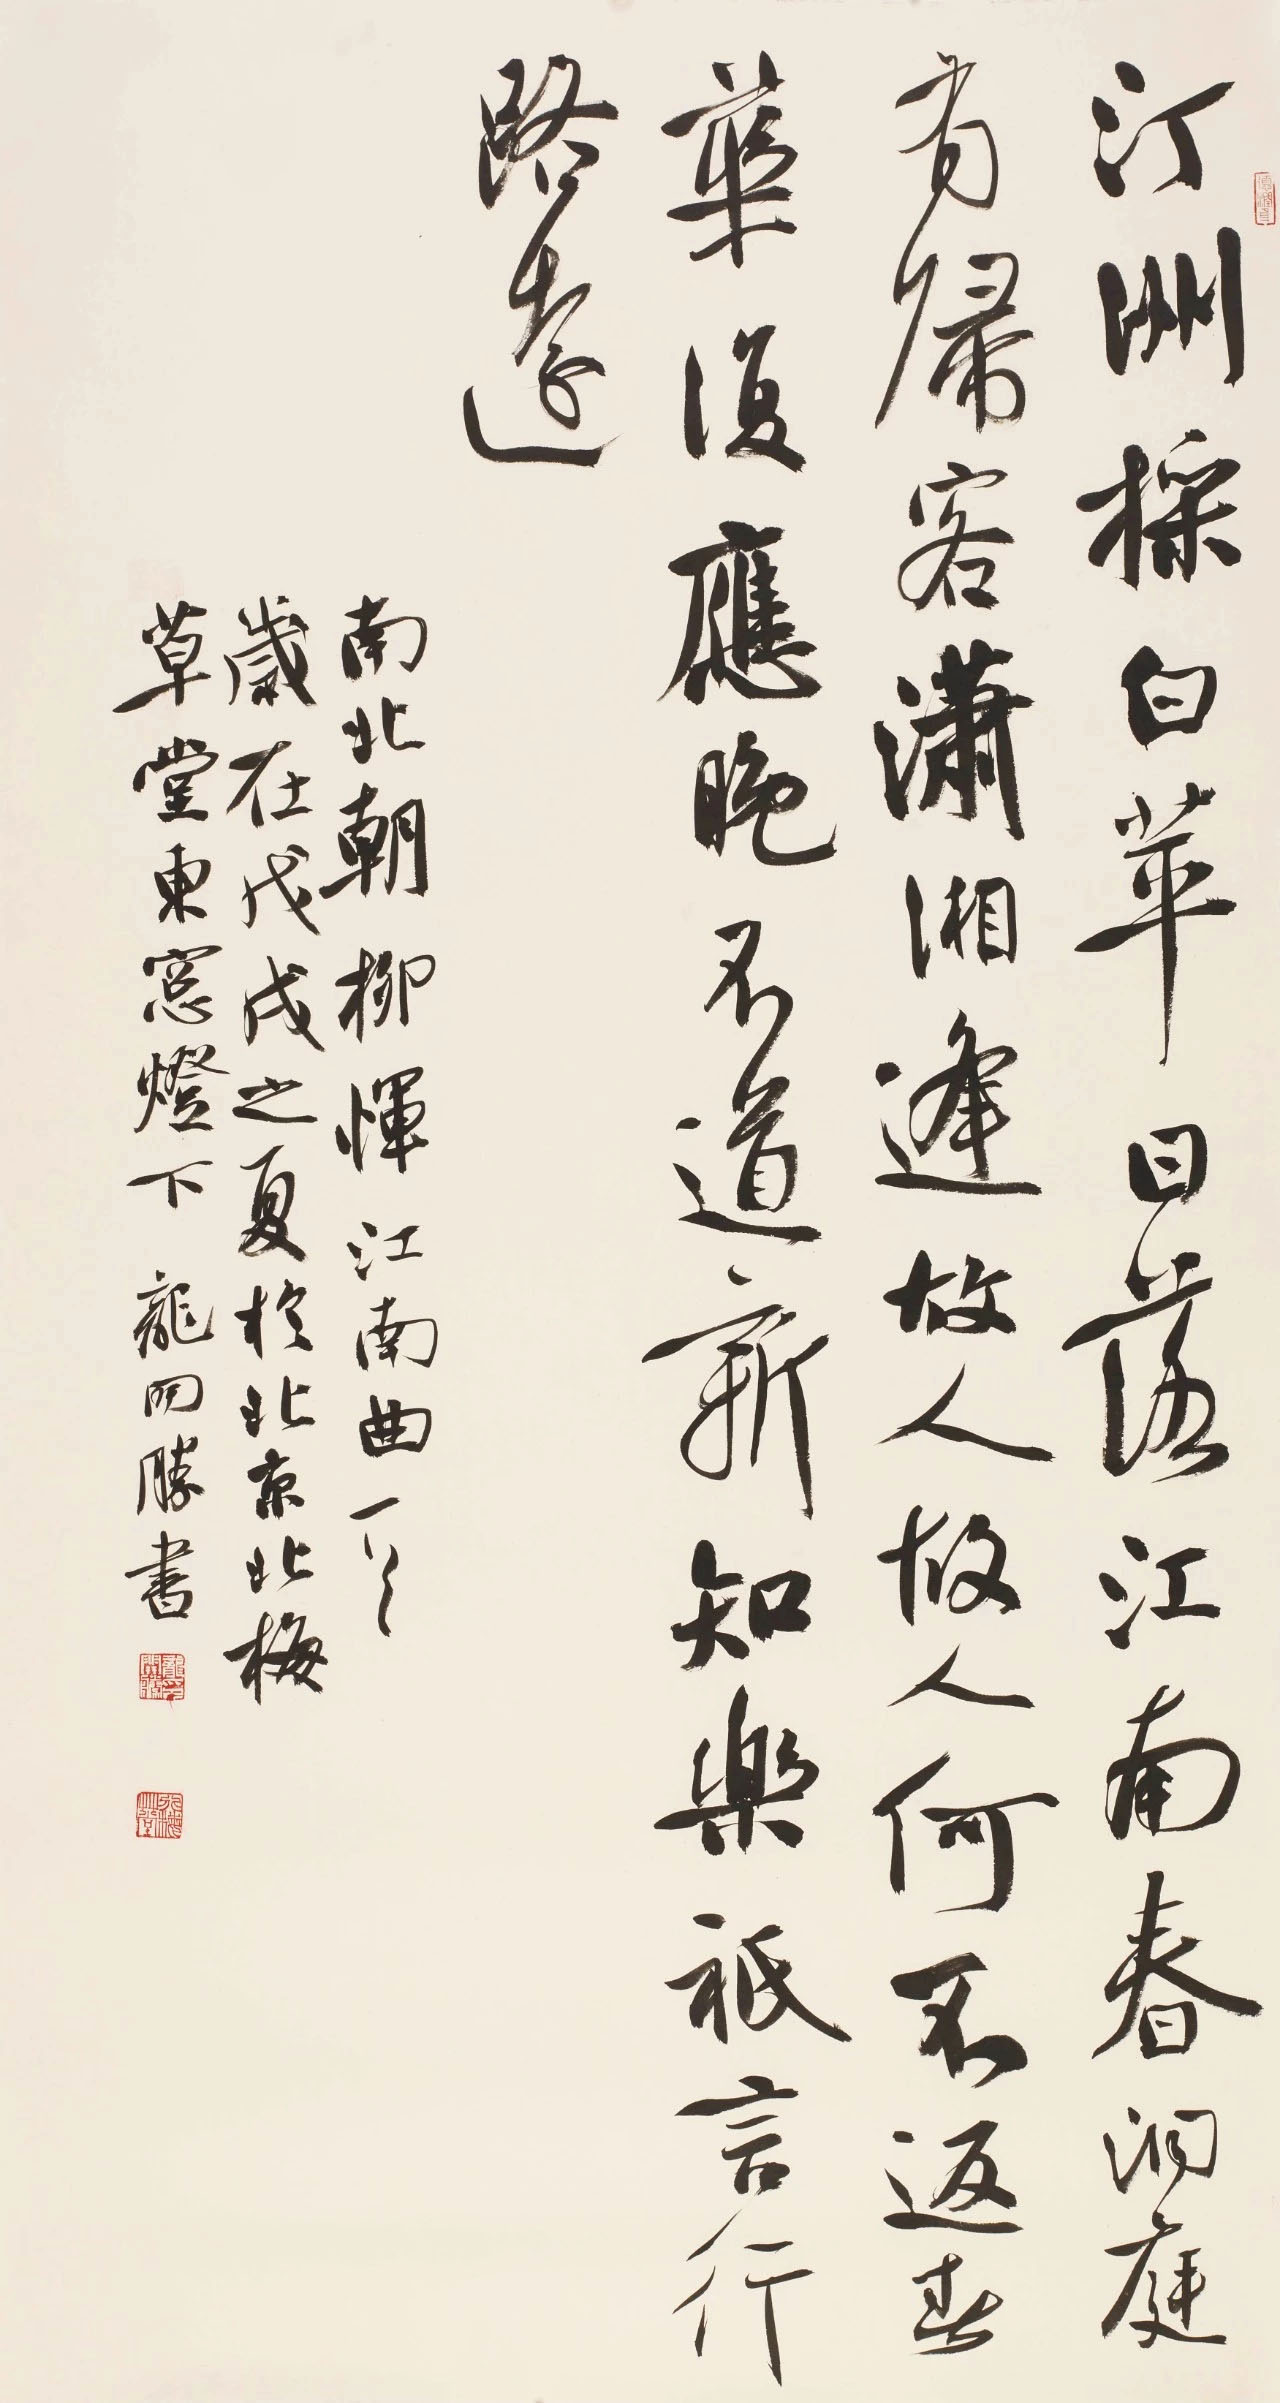 汀洲採白苹日落江南春洞庭
有歸客瀟湘逢故人故人何不返春
華復應晚不道新知樂祇言行
路遠
南北朝柳惲江南曲一首
歲在戊戌之夏於北京北梅
草堂東窓燈下龍開勝書